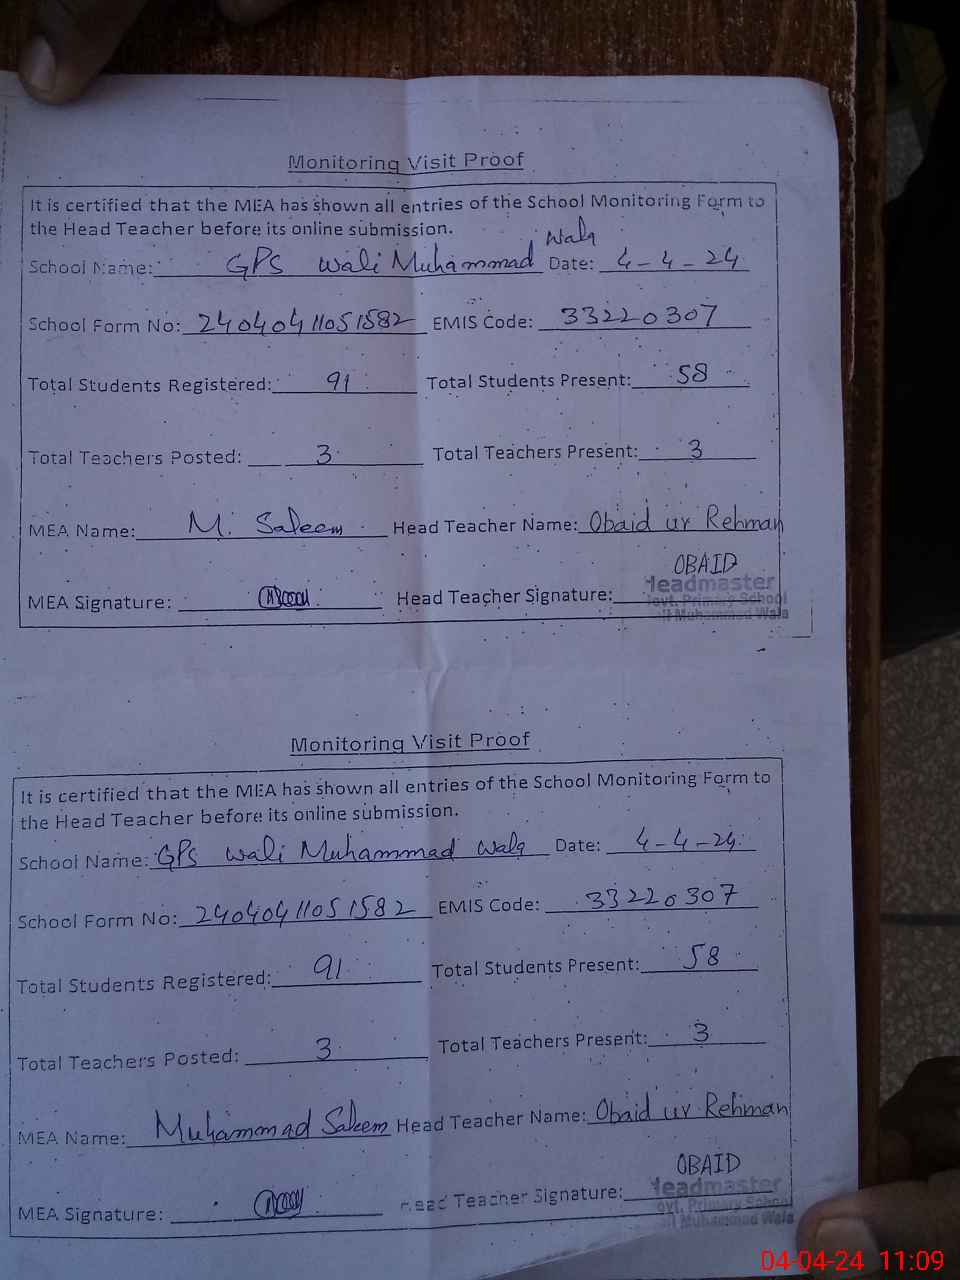 Monitoring Visit Proof
It is certified that the MEA has shown all entries of the School Monitoring Form to
the Head Teacher before its online submission.
School Name: GPS Wali Muhammad Wala Date: 4-4-24
School Form No: 24040411051582 EMIS Code: 33220307
Total Students Registered: 91 Total Students Present: 58
Total Teachers Posted: 3 Total Teachers Present: 3
MEA Name: M. Saleem Head Teacher Name: Obaid ur Rehman
OBAID
MEA Signature: Head Teacher Signature:
Headmaster
Govt. Primary School
Wali Muhammad Wala
Monitoring Visit Proof
It is certified that the MEA has shown all entries of the School Monitoring Form to
the Head Teacher before its online submission.
School Name: GPS Wali Muhammad Wala Date: 4-4-24
School Form No: 24040411051582 EMIS Code: 33220307
Total Students Registered: 91 Total Students Present: 58
Total Teachers Posted: 3 Total Teachers Present: 3
MEA Name: Muhammad Saleem Head Teacher Name: Obaid ur Rehman
OBAID
MEA Signature: Head Teacher Signature:
Headmaster
Govt. Primary School
Wali Muhammad Wala
04-04-24 11:09